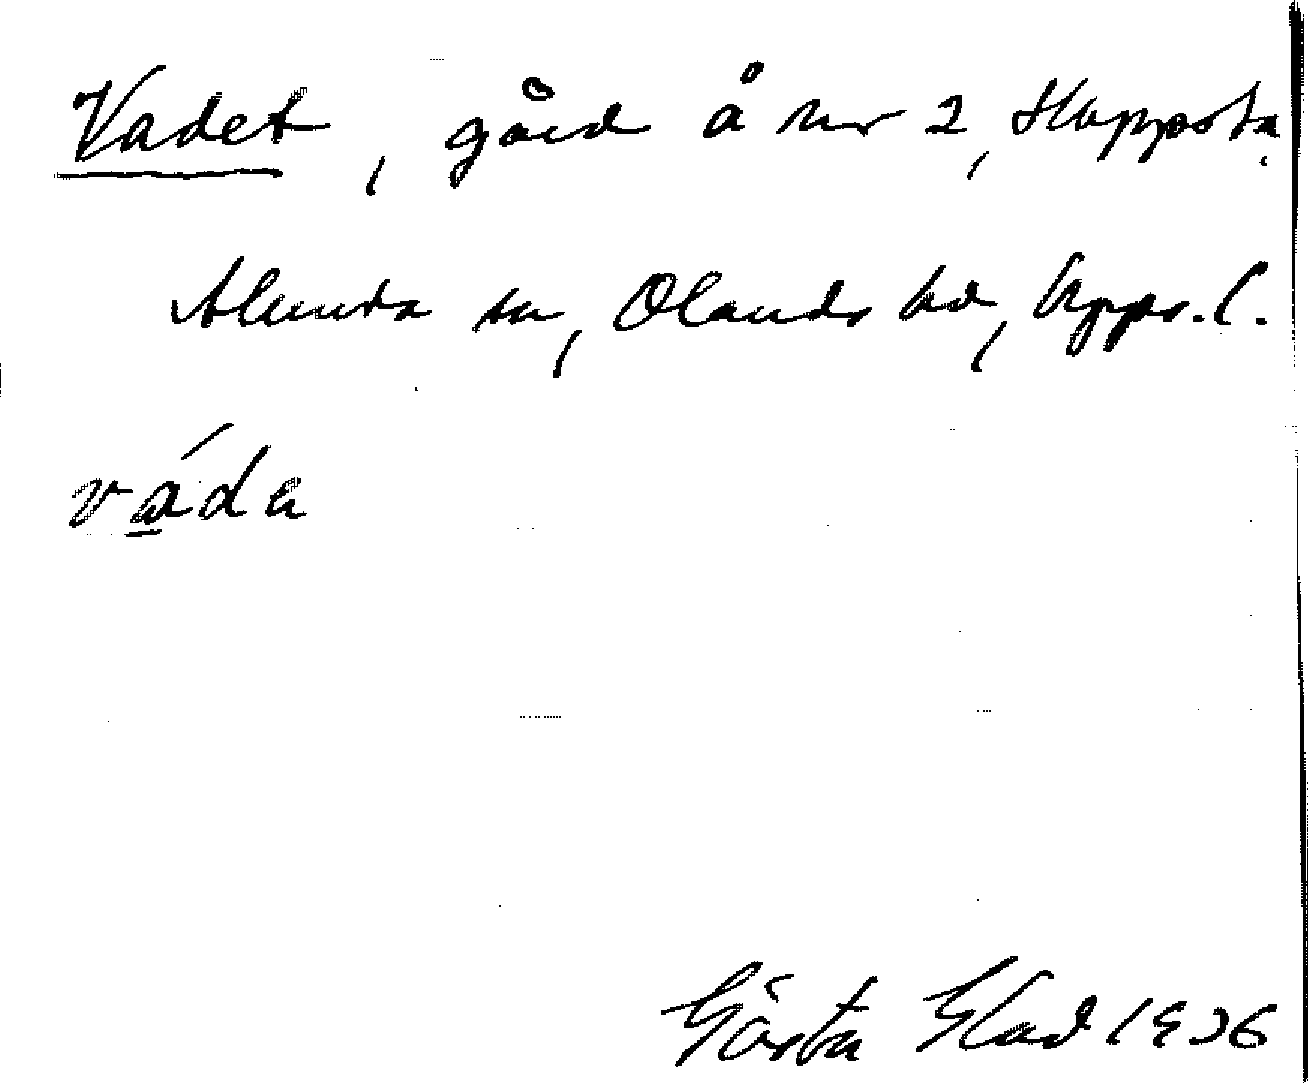 Vadet, gård å nr 2, Kloppsta,
Alunda sn, Olands hd, Upps. l.
váda
Gösta Glad 1936